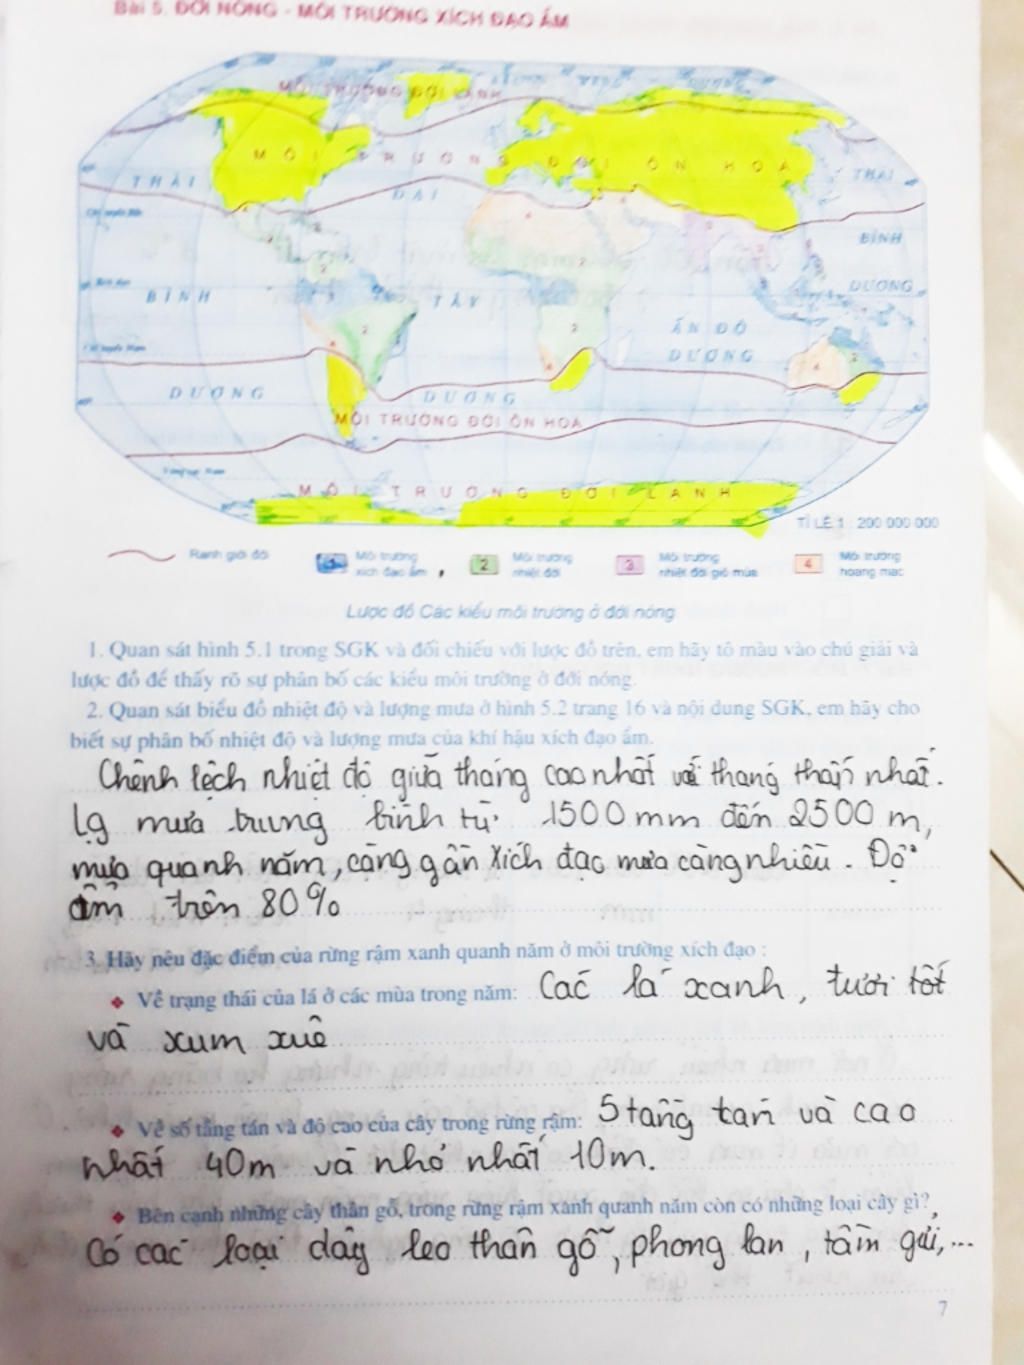 Bài 5. ĐỚI NÓNG - MÔI TRƯỜNG XÍCH ĐẠO ẨM
MÔI TRƯỜNG ĐỚI LẠNH
MÔI TRƯỜNG ĐỚI ÔN HOÀ
THÁI
ĐẠI
THÁI
BÌNH
BÌNH
TÂY
ẤN ĐỘ
DƯƠNG
DƯƠNG
DƯƠNG
DƯƠNG
MÔI TRƯỜNG ĐỚI ÔN HOÀ
MÔI TRƯỜNG ĐỚI LẠNH
TỈ LỆ 1 : 200 000 000
Ranh giới đới
1 Môi trường xích đạo ẩm
2 Môi trường nhiệt đới
3 Môi trường nhiệt đới gió mùa
4 Môi trường hoang mạc
Lược đồ Các kiểu môi trường ở đới nóng
1. Quan sát hình 5.1 trong SGK và đối chiếu với lược đồ trên, em hãy tô màu vào chú giải và
lược đồ để thấy rõ sự phân bố các kiểu môi trường ở đới nóng.
2. Quan sát biểu đồ nhiệt độ và lượng mưa ở hình 5.2 trang 16 và nội dung SGK, em hãy cho
biết sự phân bố nhiệt độ và lượng mưa của khí hậu xích đạo ẩm.
Chênh lệch nhiệt độ giữa tháng cao nhất với tháng thấp nhất.
Lg mưa trung bình từ 1500 mm đến 2500 m,
mưa quanh năm, càng gần xích đạo mưa càng nhiều. Độ
ẩm trên 80%
3. Hãy nêu đặc điểm của rừng rậm xanh quanh năm ở môi trường xích đạo :
❖ Về trạng thái của lá ở các mùa trong năm: Các lá xanh, tươi tốt
và xum xuê
❖ Về số tầng tán và độ cao của cây trong rừng rậm: 5 tầng tán và cao
nhất 40m và nhỏ nhất 10m.
❖ Bên cạnh những cây thân gỗ, trong rừng rậm xanh quanh năm còn có những loại cây gì?
Có các loại dây leo thân gỗ, phong lan, tầm gửi,...
7